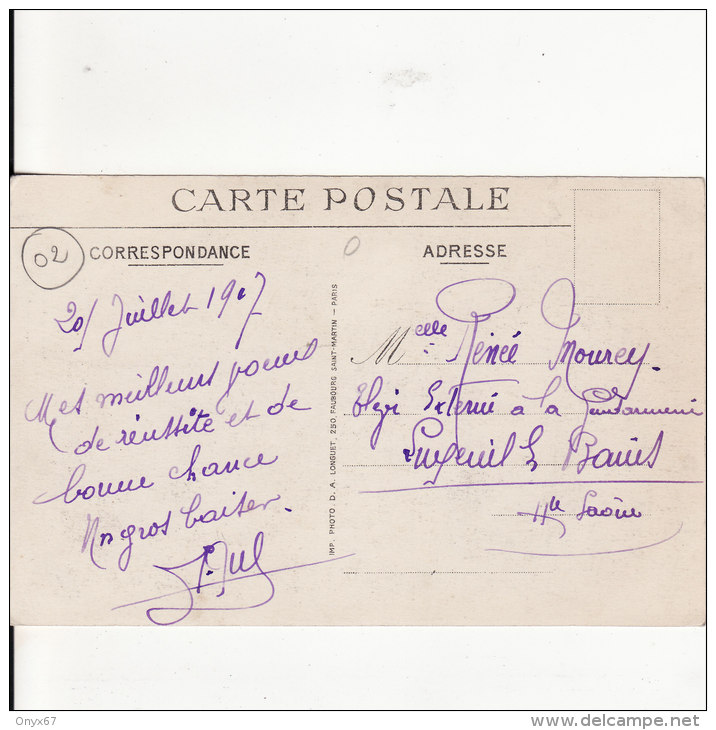 CARTE POSTALE
02
CORRESPONDANCE
ADRESSE
20/ Juillet 1917
Mes meilleurs
de réussite et de
bonne chance
Un gros baiser.
IMP. PHOTO. D. A. LONGUET, 250, FAUBOURG SAINT-MARTIN — PARIS
Melle Renée Mourey.
à la Gendarmerie
Luxeuil Bains
Hte Saône
Onyx67
http://www.delcampe.net